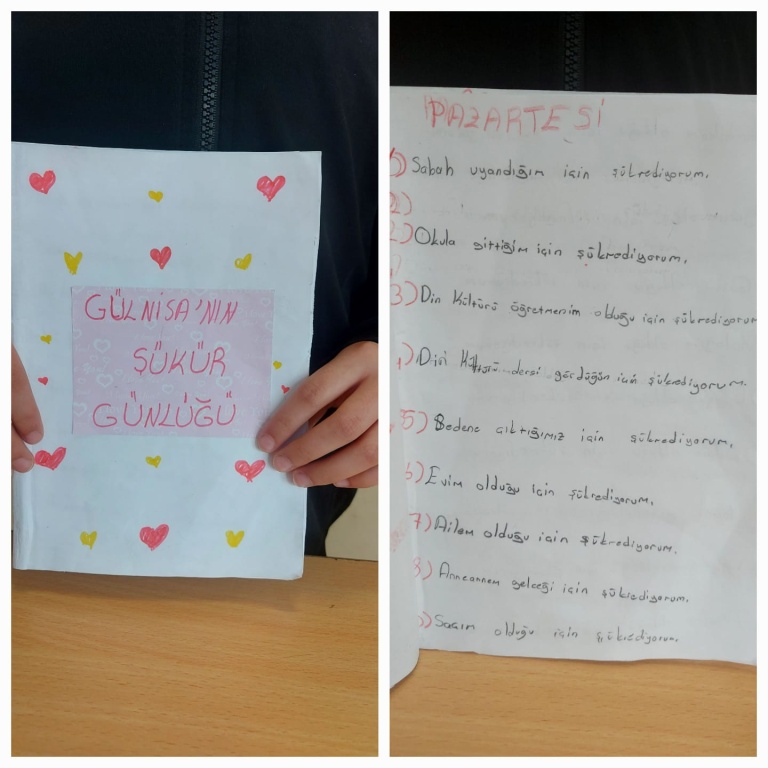 GÜLNİSA'NIN
ŞÜKÜR
GÜNLÜĞÜ
PAZARTESİ
Sabah uyandığım için şükrediyorum.
2)
2) Okula gittiğim için şükrediyorum.
3) Din Kültürü öğretmenim olduğu için şükrediyorum
Din Kültürü dersi gördüğüm için şükrediyorum.
5) Bedene çıktığımız için şükrediyorum.
6) Evim olduğu için şükrediyorum.
7) Ailem olduğu için şükrediyorum.
8) Anneannem geleceği için şükrediyorum.
Saçım olduğu için şükrediyorum.